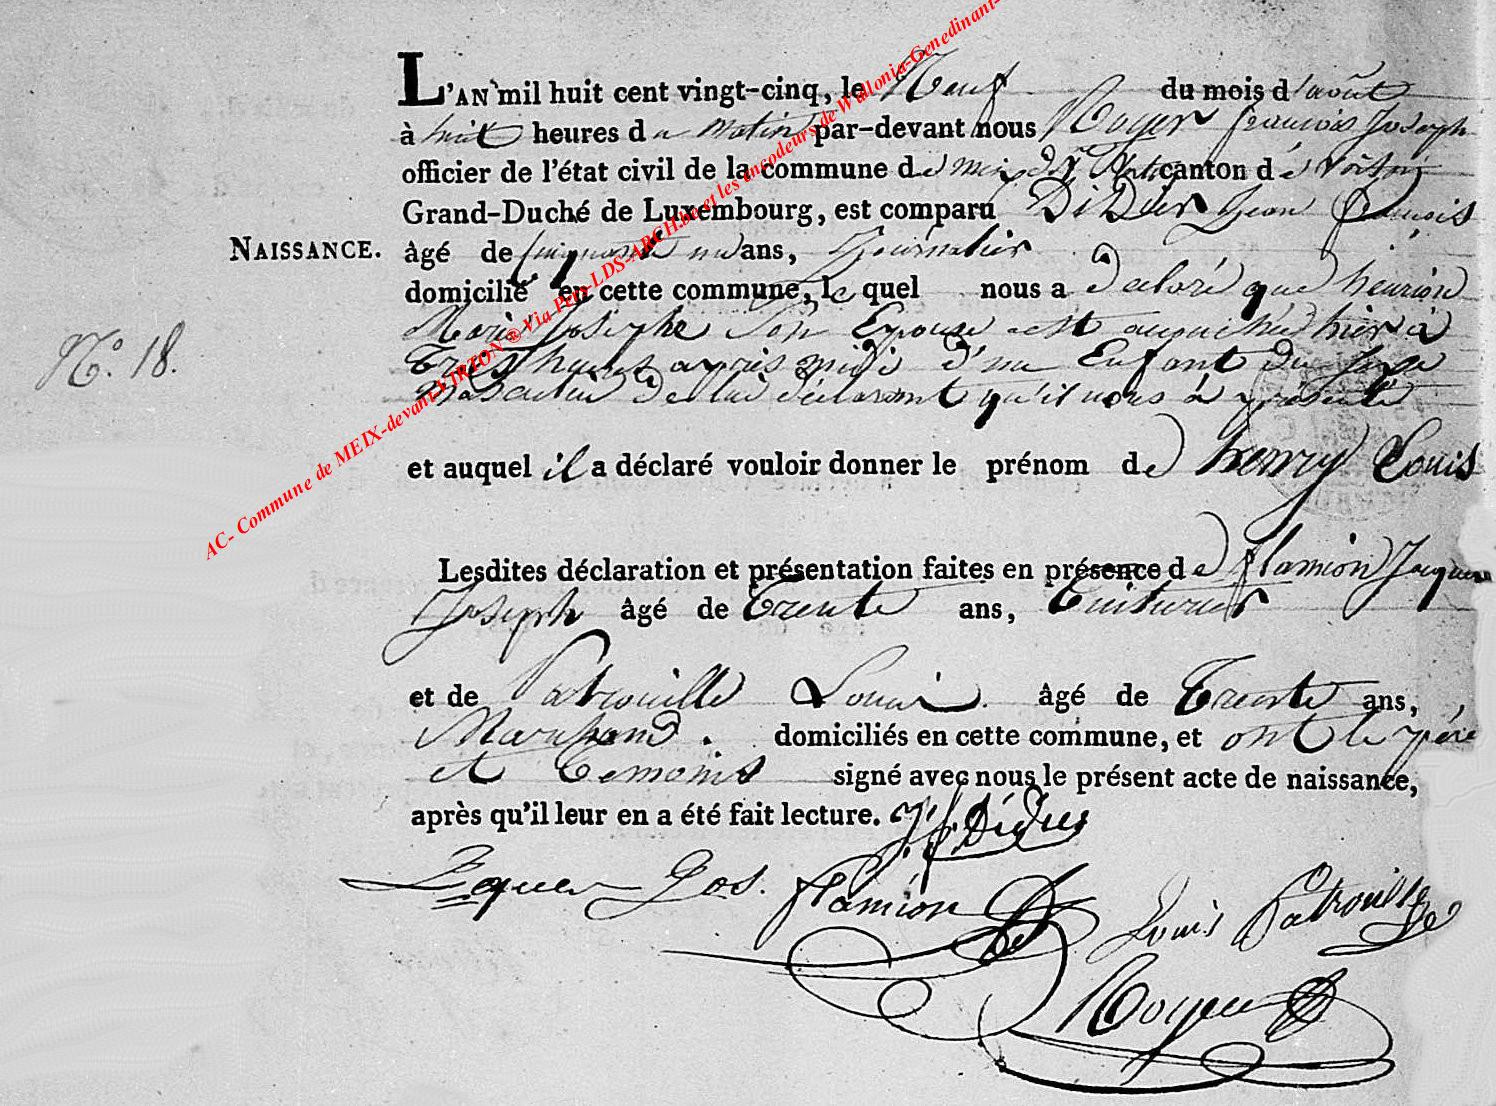 L'AN mil huit cent vingt-cinq, le Neuf du mois d'août
à huit heures du matin par-devant nous Royer françois Joseph
officier de l'état civil de la commune de meix dt Virton canton de Virton
Grand-Duché de Luxembourg, est comparu Didier Jean françois
NAISSANCE. âgé de Cinquante un ans, Journalier
domicilié en cette commune, le quel nous a declaré que henrion
N.° 18.
Marie Josephe Son Epouse est accouchée hier à
Trois heures après midi d'un Enfant du Sexe
masculin de lui déclarant qu'il nous à présenté
et auquel il a déclaré vouloir donner le prénom de henry Louis
Lesdites déclaration et présentation faites en présence de flamion Jacques
Joseph âgé de Trente ans,
et de Patrouille Louis âgé de Trente ans,
Marchand. domiciliés en cette commune, et ont le père
et temoins signé avec nous le présent acte de naissance,
après qu'il leur en a été fait lecture. J. f. Didier
Jaques Jos. flamion Louis Patrouille
Royer
AC- Commune de MEIX-devant-VIRTON @ Via Pers-LDS-ARCH.be et les encodeurs de Wallonia-Genedinant-